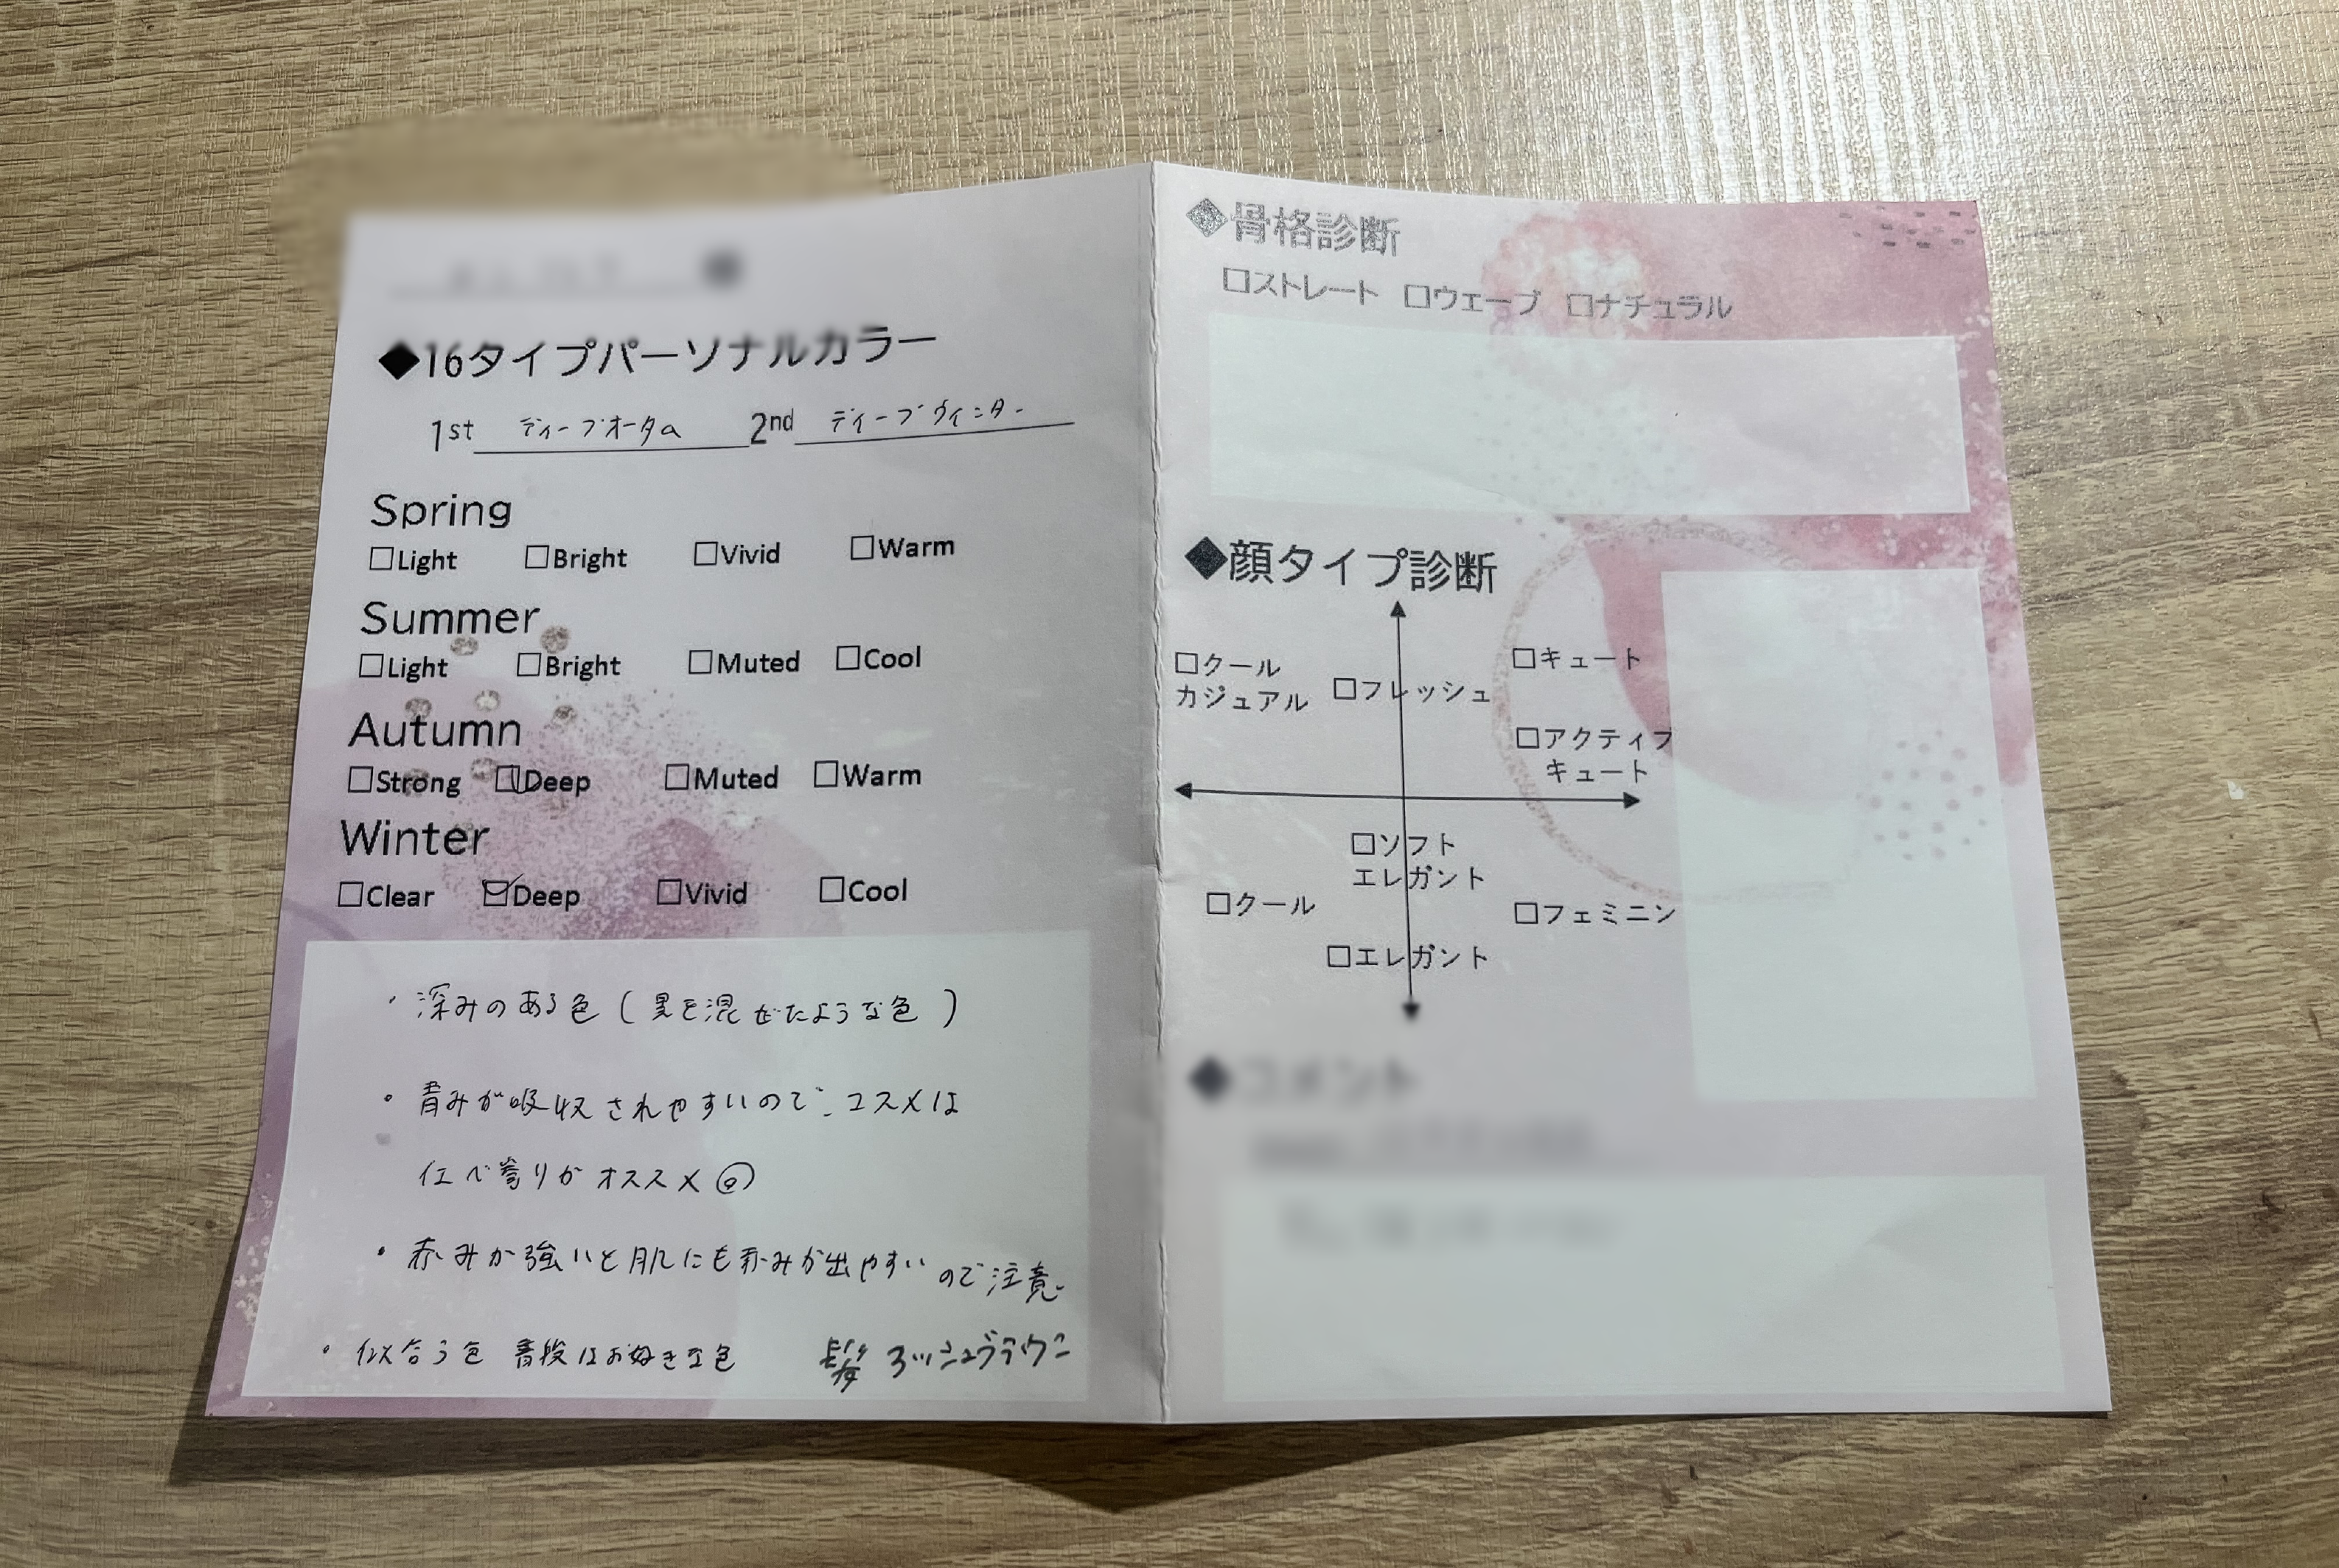 ◆16タイプパーソナルカラー
1st ディープオータム 2nd ディープウィンター
Spring
□Light □Bright □Vivid □Warm
Summer
□Light □Bright □Muted □Cool
Autumn
□Strong □Deep □Muted □Warm
Winter
□Clear ☑Deep □Vivid □Cool
・深みのある色(黒を混ぜたような色)
・青みが吸収されやすいので、コスメは
イエベ寄りがオススメ
・赤みが強いと肌にも赤みが出やすいので注意
・似合う色 普段はお好きな色 髪 アッシュブラウン
◆骨格診断
□ストレート □ウェーブ □ナチュラル
◆顔タイプ診断
□クール
カジュアル
□フレッシュ
□キュート
□アクティブ
キュート
□ソフト
エレガント
□クール
□フェミニン
□エレガント
◆コメント